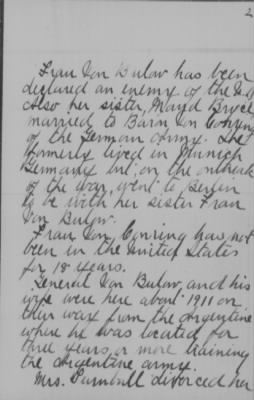 2
Frau Von Bulow has been
declared an enemy of the U.S.
Also her sister, Mayd Bryce
married to Baron Von Conring
of the German Army. She
formerly lived in Munich
Germany but, on the outbreak
of the war, went to Berlin
to be with her sister Frau
Von Bulow.
Frau Von Conring has not
been in the United States
for 18 years.
General Von Bulow, and his
wife were here about 1911 on
their way from the Argentine
where he was located for
three years or more training
the Argentine army.
Mrs. Turnbull divorced her